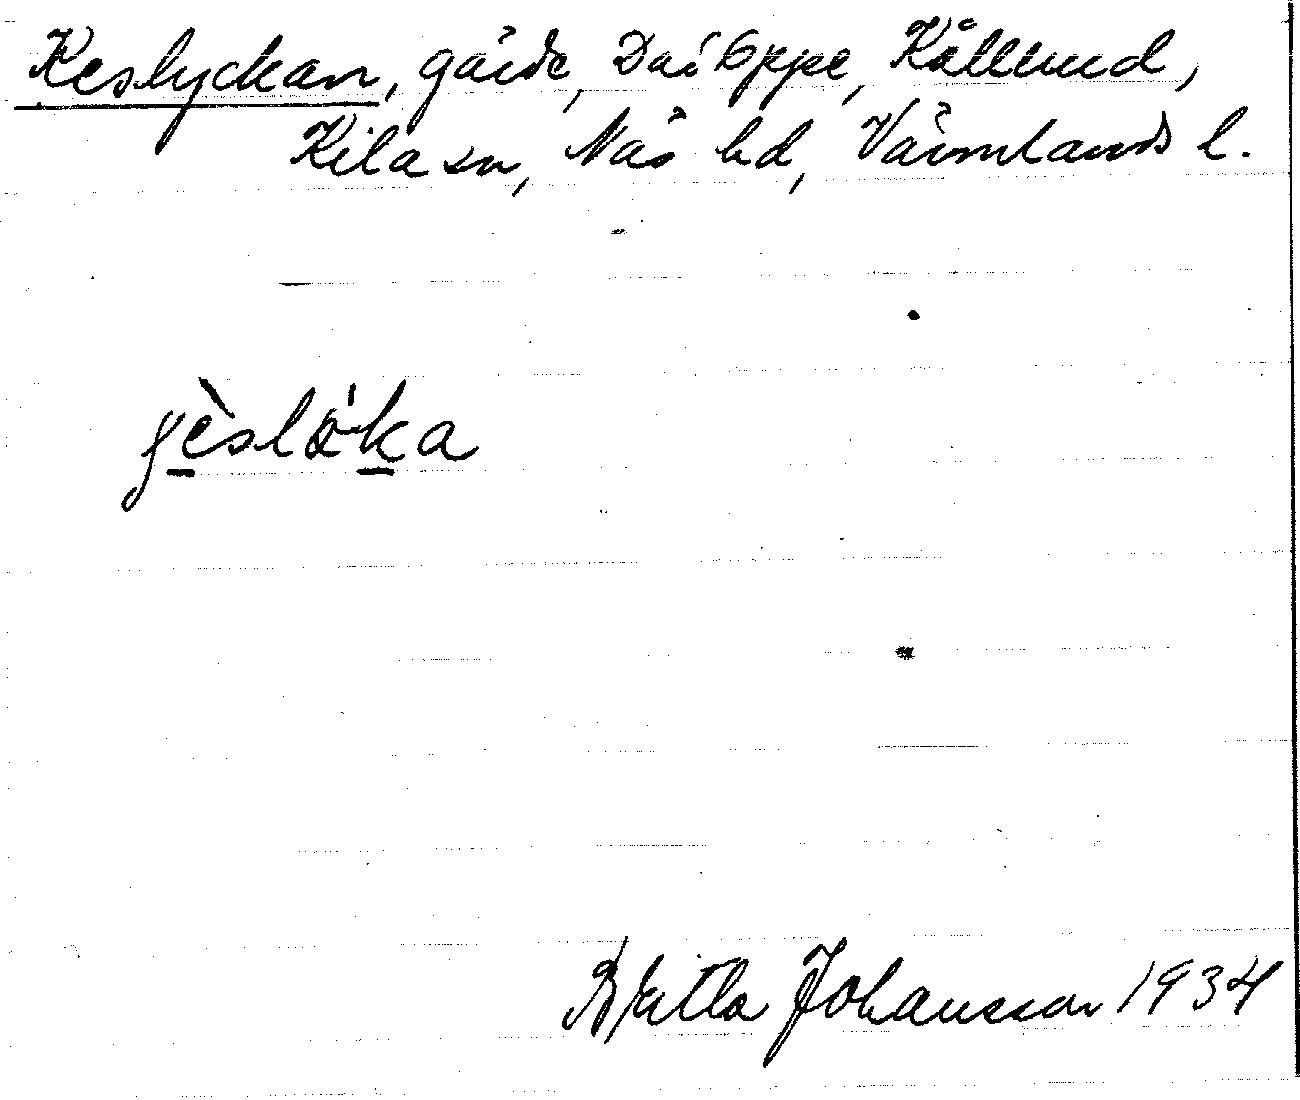 Keslyckan, gärde, Där Uppe, Källund,
Kila sn, Näs hd, Värmlands l.
gèslö̀ka
Britta Johansson 1934